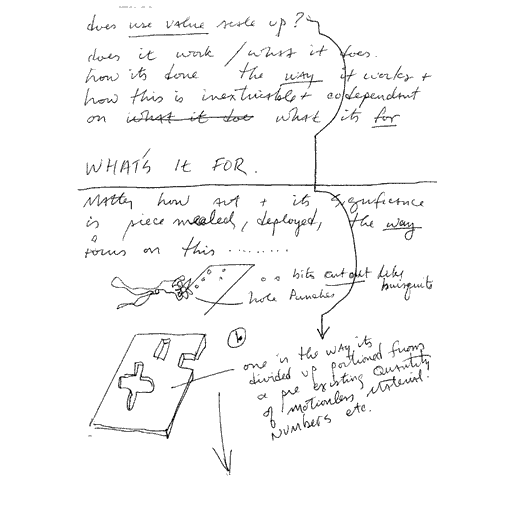 does use value scale up?
does it work / what it does.
how its done the way it works +
how this is inextricable + codependent
on what it doe what its for
WHAT'S IT FOR.
Matter how art + its significance
is piece mealed, deployed, the way
focus on this .........
bits cut out like
buisquits
hole Punches
b
one is the way its
divided up portioned from
a pre existing Quantity
of motionless Material.
Numbers etc.